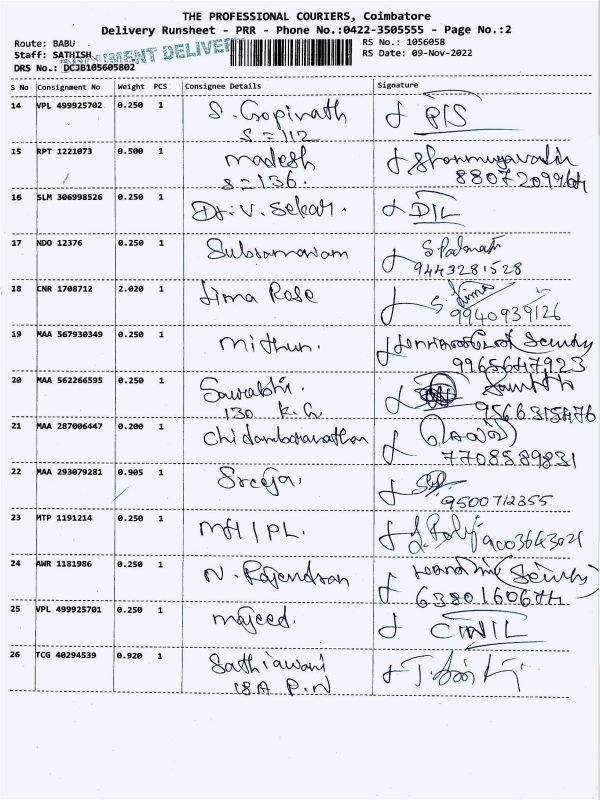 THE PROFESSIONAL COURIERS, Coimbatore
Delivery Runsheet - PRR - Phone No.:0422-3505555 - Page No.:2
Route: BABU RS No.: 1056058
Staff: SATHISH DOCUMENT DELIVER RS Date: 09-Nov-2022
DRS No.: DCJB105605802
S No Consignment No Weight PCS Consignee Details Signature
14 VPL 499925702 0.250 1 S. Gopinath
S=112
15 RPT 1221073 0.500 1 madesh
S=136.
16 SLM 306998526 0.250 1 Dr.V. Sekar. DIL
17 NDO 12376 0.250 1 Subramaniam
9443281528
18 CNR 1708712 2.020 1 Jima Rose S. Jima
9940939126
19 MAA 567930349 0.250 1 Mithun.
9965647923
20 MAA 562266595 0.250 1 Saurabhi.
130 K.G 9566315476
21 MAA 287006447 0.200 1 Chidambaranathan
7708589831
22 MAA 293079281 0.905 1 Sreeja.
9500712355
23 MTP 1191214 0.250 1 9003643021
24 AWR 1181986 0.250 1 N. Rajendran
25 VPL 499925701 0.250 1 majeed.
26 TCG 40294539 0.920 1 Sathiawani
18A P.N